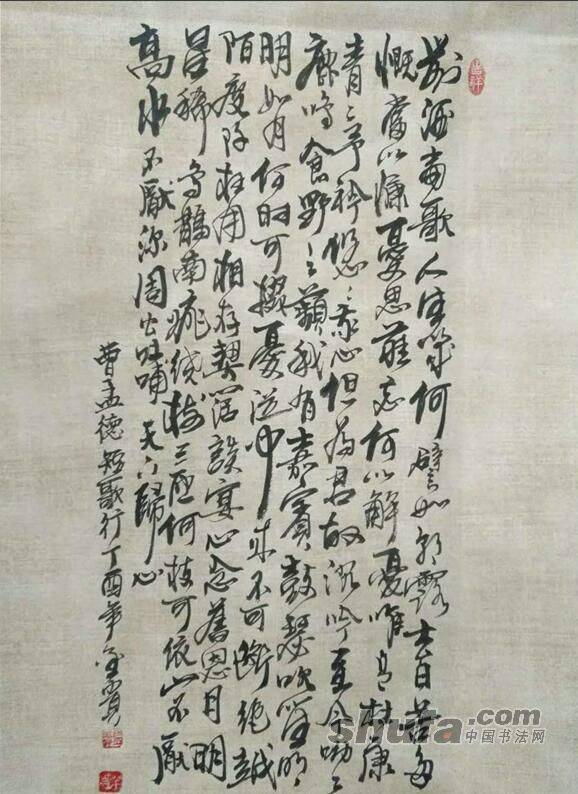 對酒當歌人生幾何譬如朝露去日苦多
慨當以慷憂思難忘何以解憂唯有杜康
青〻子衿悠〻我心但為君故沉吟至今呦〻
鹿鳴食野之蘋我有嘉賓鼓瑟吹笙明
明如月何时可掇憂從中來不可斷絕越
陌度阡枉用相存契闊談宴心念舊恩月明
星稀烏鵲南飛繞樹三匝何枝可依山不厭
高水不厭深周公吐哺天下歸心
曹孟德短歌行丁酉年
吉祥
shufa.com
中国书法网